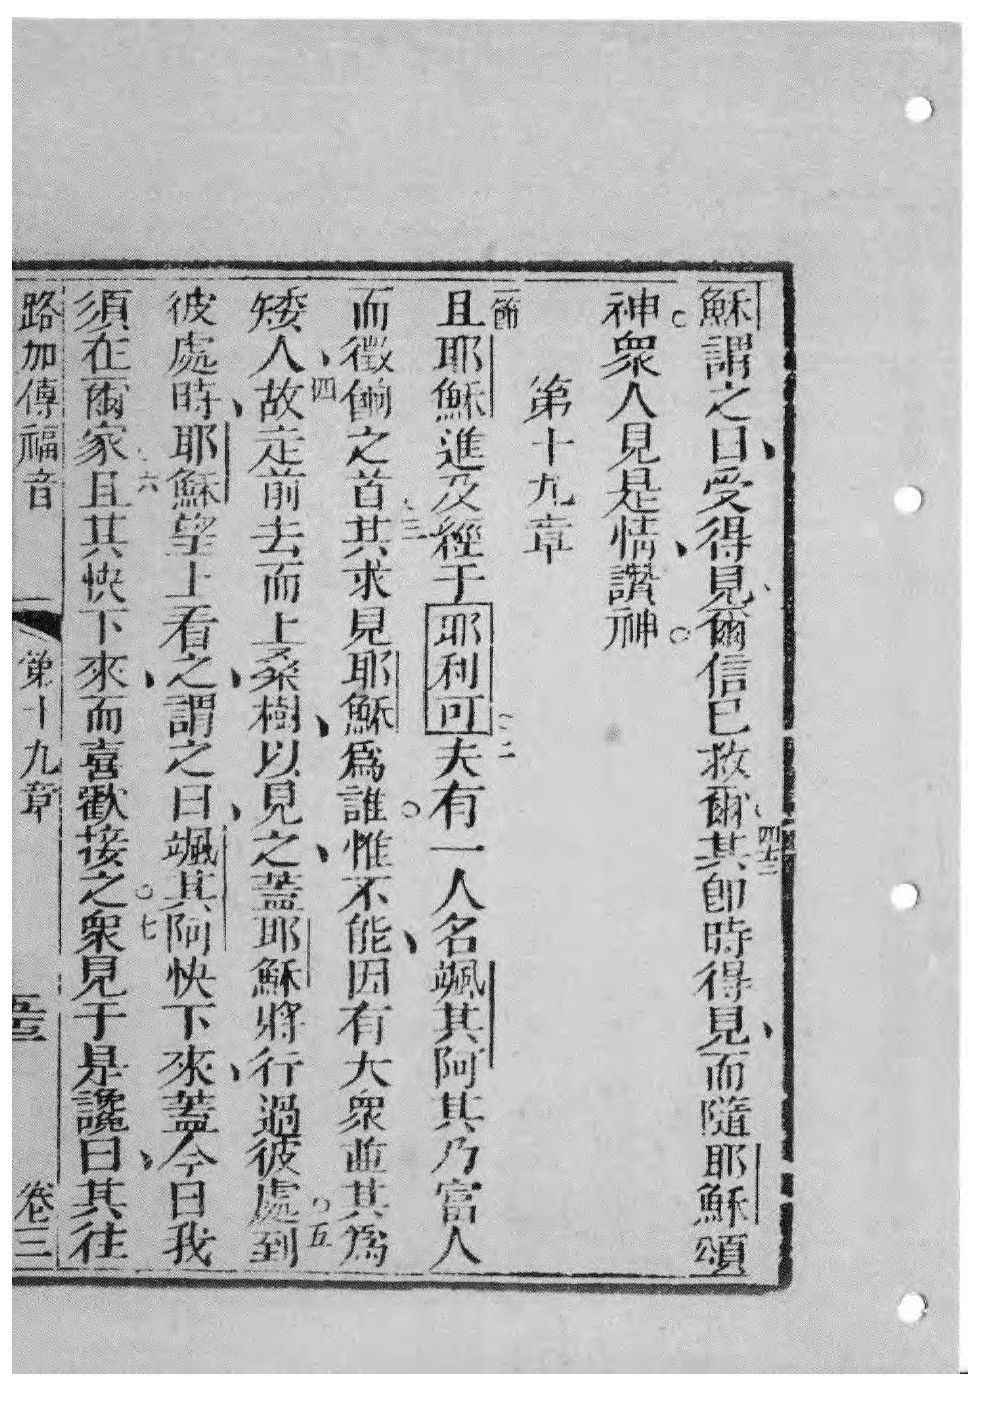 穌謂之曰受得見爾信已救爾四十三其卽時得見而隨耶穌頌
神衆人見是情讚神
第十九章
一節且耶穌進及經于耶利可二夫有一人名颯其阿其乃富人
而徵餉之首三其求見耶穌爲誰惟不能因有大衆並其爲
矮人四故走前去而上桑樹以見之蓋耶穌將行過彼處五到
彼處時耶穌望上看之謂之曰颯其阿快下來蓋今日我
須在爾家六且其快下來而喜歡接之七衆見于是讒曰其往
路加傳福音 第十九章 五十三 卷三